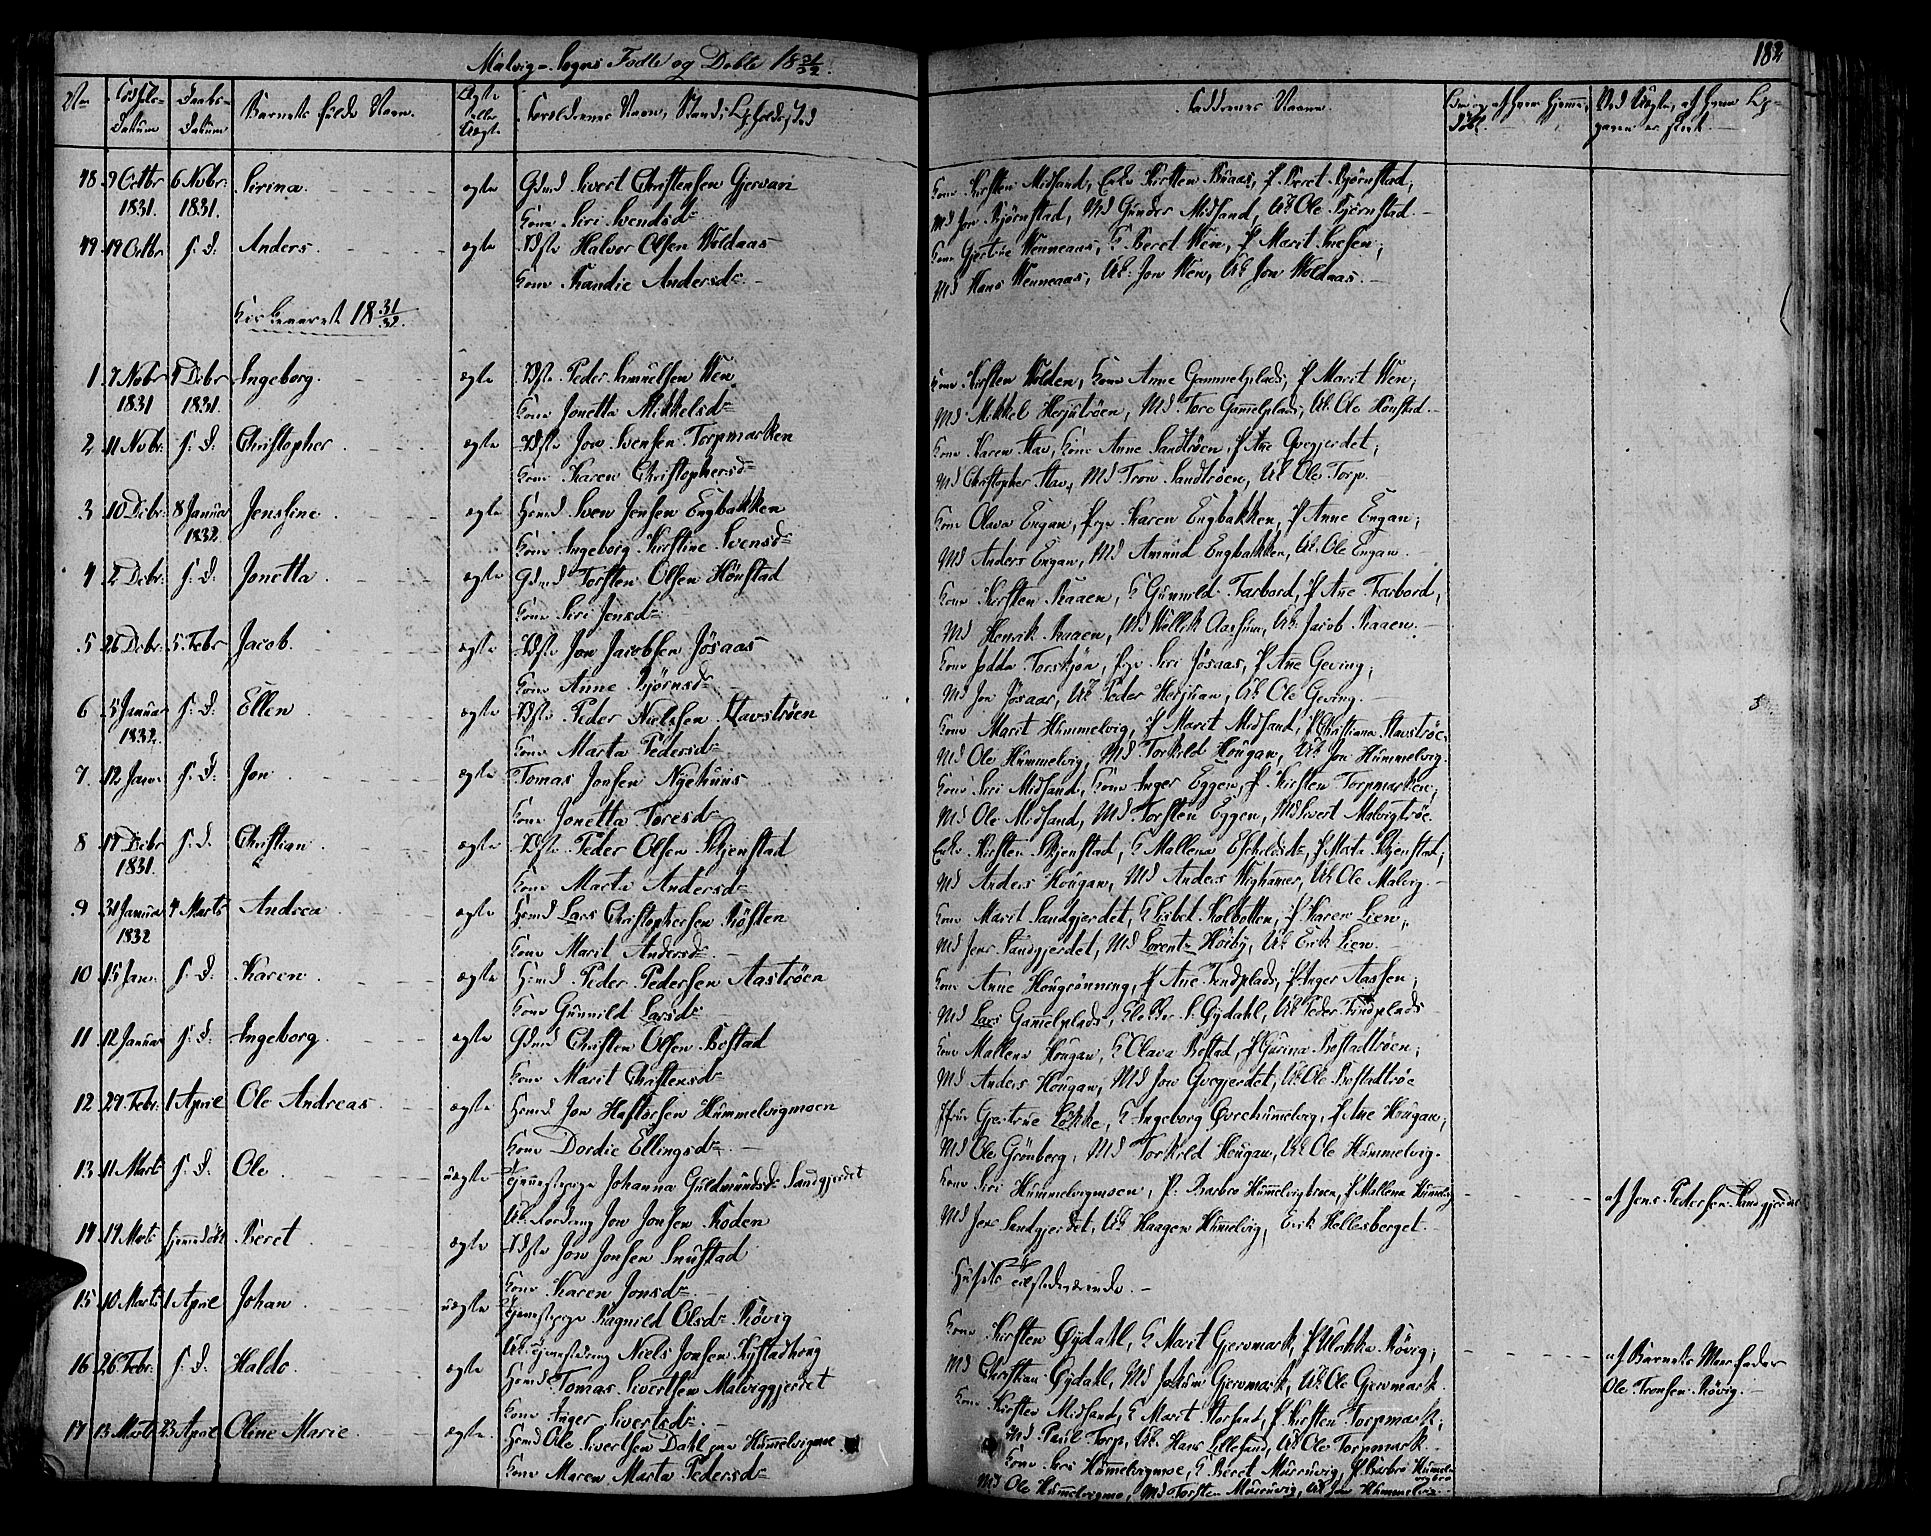 Malvig-Sogns Fødte og Døbte 18 31/32.
182
No
Fødsels-Datum
Daabs-Datum
Barnets fulde Navn.
Ægte eller Uægte
Forældrenes Navn, Stand,
Faddernes Navne.
48 9 Octbr 1831. 6 Novbr: 1831. Sirina. ægte Gdmd Sivert Christensen Gjervan
Kone Siri Svendsdr
Kone Kirsten Midsand, Enke Kirsten Buaas, P Beret Bjørnstad,
Md Jon Bjørnstad, Md Gunder Midsand, UK Ole Bjørnstad.
49 19 Octbr s. D. Anders ægte Halvor Olsen Woldaas
Kone Randie Andersdr
Kone Gjertrue Wenneaas, G Beret Wen, P Marit
Md Hans Wenneaas, UK: Jon Wen, UK Jon Woldaas.
Kirkeaaret 18 31/32.
1 7 Novbr 1831 4 Decbr 1831. Ingeborg. ægte Peder Samuelsen Wen
Kone Jonetta Mikkelsdr
Kone Kirsten Wolden, Kone Anne Gammelplads, P Marit Wen,
Md Mikkel Herjutrøen, Md Tore Gamelplads, UK Ole Honstad.
2 11 Novbr: s. D. Christopher ægte Jon Svensen Torpmarken
Kone Karen Christophersdr
Kone Karen Stav, Kone Anne Sandtrøen, P Ane Qvegjerdet,
Md Christopher Stav, Md Tron Sandtrøen, UK Ole Torp.
3 10 Decbr 8 Janua 1832. Jensine ægte Hmd Sven Jensen Engbakken
Kone Ingeborg Kirstine Svensdr
Kone Olava Engan, Karen Engbakken, P Anne Engan,
Md Anders Engan, Md Amund Engbakken, UK Ole Engan.
4 2 Decbr: s. D. Jonetta ægte Gdmd Torsten Olsen Honstad
Kone Siri Jensdr
Kone Kirsten Saxen, G Gunnild Farbord, P Ane Farbord,
Md Henrik, Md Wellek, UK Jacob
5 26 Decbr: 5 Febr Jacob. ægte Jon Jacobsen Jøsaas
Kone Anne Bjørnsdr
Kone Torsbjøn, Siri Jøsaas, P Ane Geving,
Md Jon Jøsaas, UK Peder Herjuan, UK Ole Geving.
6 5 Januar 1832. s. D. Ellen ægte Peder Nielsen Stavstrøen
Kone Marta Pedersdr
Kone Marit Hummelvig, P Marit Midsand, P Christiana Stavstrøe.
Md Ole Hummelvig, Md Torkild Hougan, UK Jon Hummelvig.
7. 12 Jan. s. D. Jon ægte Tomas Jonsen Nyehuus
Kone Jonetta Toresdr
Kone Siri Midsand, Kone Inger Eggen, P Kirsten Torpmarken,
Md Ole Midsand, Md Torsten Eggen, Md Sivert Malvigtrøe
8 17 Decbr 1831. s. D. Christian ægte Peder Olsen Skjenstad
Kone Marta Andersdr
Enke Kirsten Skjenstad, G Mallena, P Marta Skjenstad,
Md Anders Hougan, Md Anders Wighamer, UK Ole Malvig.
9 31 Janua 1832 4 Marts Andrea ægte Hmd Lars Christophersen Røsten
Kone Marit Andersdr
Kone Marit Sandgjerdet, G Lisbet Kolbotten, P Karen Lien,
Md Jens Sandgjerdet, Md Lorentz Høiby, UK Erik Lien
10 15 Jan. s. D. Karen ægte Hmd Peder Pedersen Aastrøen
Kone Gunnild Larsdr
Kone Anne Hougrønning, P Ane Findplads, P Inger Aassen,
Md Lars Gamelplads, Øydahl, UK Peder Findplads
11 12 Januar s. D. Ingeborg ægte Gdmd Christen Olsen Bostad
Kone Marit Christensdr
Kone Mallena Hougan, G Olava Bostad, P Gurina Bostadtrøen,
Md Anders Hougan, Md Jon Qvegjerdet, UK Ole Bostadtrøe
12 29 Febr: 1 April Ole Andreas ægte Hmd Jon Haftorsen Hummelvigmoen
Kone Dordie Ellingsdr
Gjertrue Løkke, G Ingeborg Øvrehummelvig, P Ane Hougan,
Md Ole Grønberg, Md Torkild Hougan, UK Ole Hummelvig.
13 11 Marts s. D. Ole uægte Johanna Guldmundsdr Sandgjerdet
UK Jon Jonsen Roden
Kone Siri Hummelvigmoen, P. Barbro Hummelvigbroen, P Mallena Hummelvig
Md Jens Sandgjerdet, UK Haagen Hummelvig, Erik Hellesberget.
af Jens Pedersen Sandgjerdet
14 19 Marts hjemmedøbt Beret ægte Jon Jonsen Smustad
Kone Karen Jonsdr
tilstedeværende.
15 10 Marts 1 April Johan uægte Ragnild Olsdr Røvig
Niels Jonsen Rystadhoug
Kone Kirsten Øydahl, G Marit Gjevmark, P Ulrikka Røvig,
Md Christian Øydahl, Md Jokum Gjevmark, UK Ole Gjevmark
af Barnets Morfader
Ole Tronsen Røvig.
16 26 Febr: s. D. Haldo ægte Hmd Tomas Sivertsen Malviggjerdet
Kone Inger Sivertsdr
Kone Kirsten Midsand, G Marit Storsand, P Kirsten Torpmark,
Md Paul Torp, UK. Hans Lillesand, UK Ole Torpmark
17 13 Marts 23 April Oline Marie ægte. Hmd Ole Sivertsen Dahl Hummelvigmoe
Kone Maren Marta Pedersdr
Kone Siri Hummelvigmoe, G Beret Muruvig, P Barbro Hummelvigbro
Md Ole Hummelvigmo, Md Torsten Muruvig, UK Jon Hummelvig